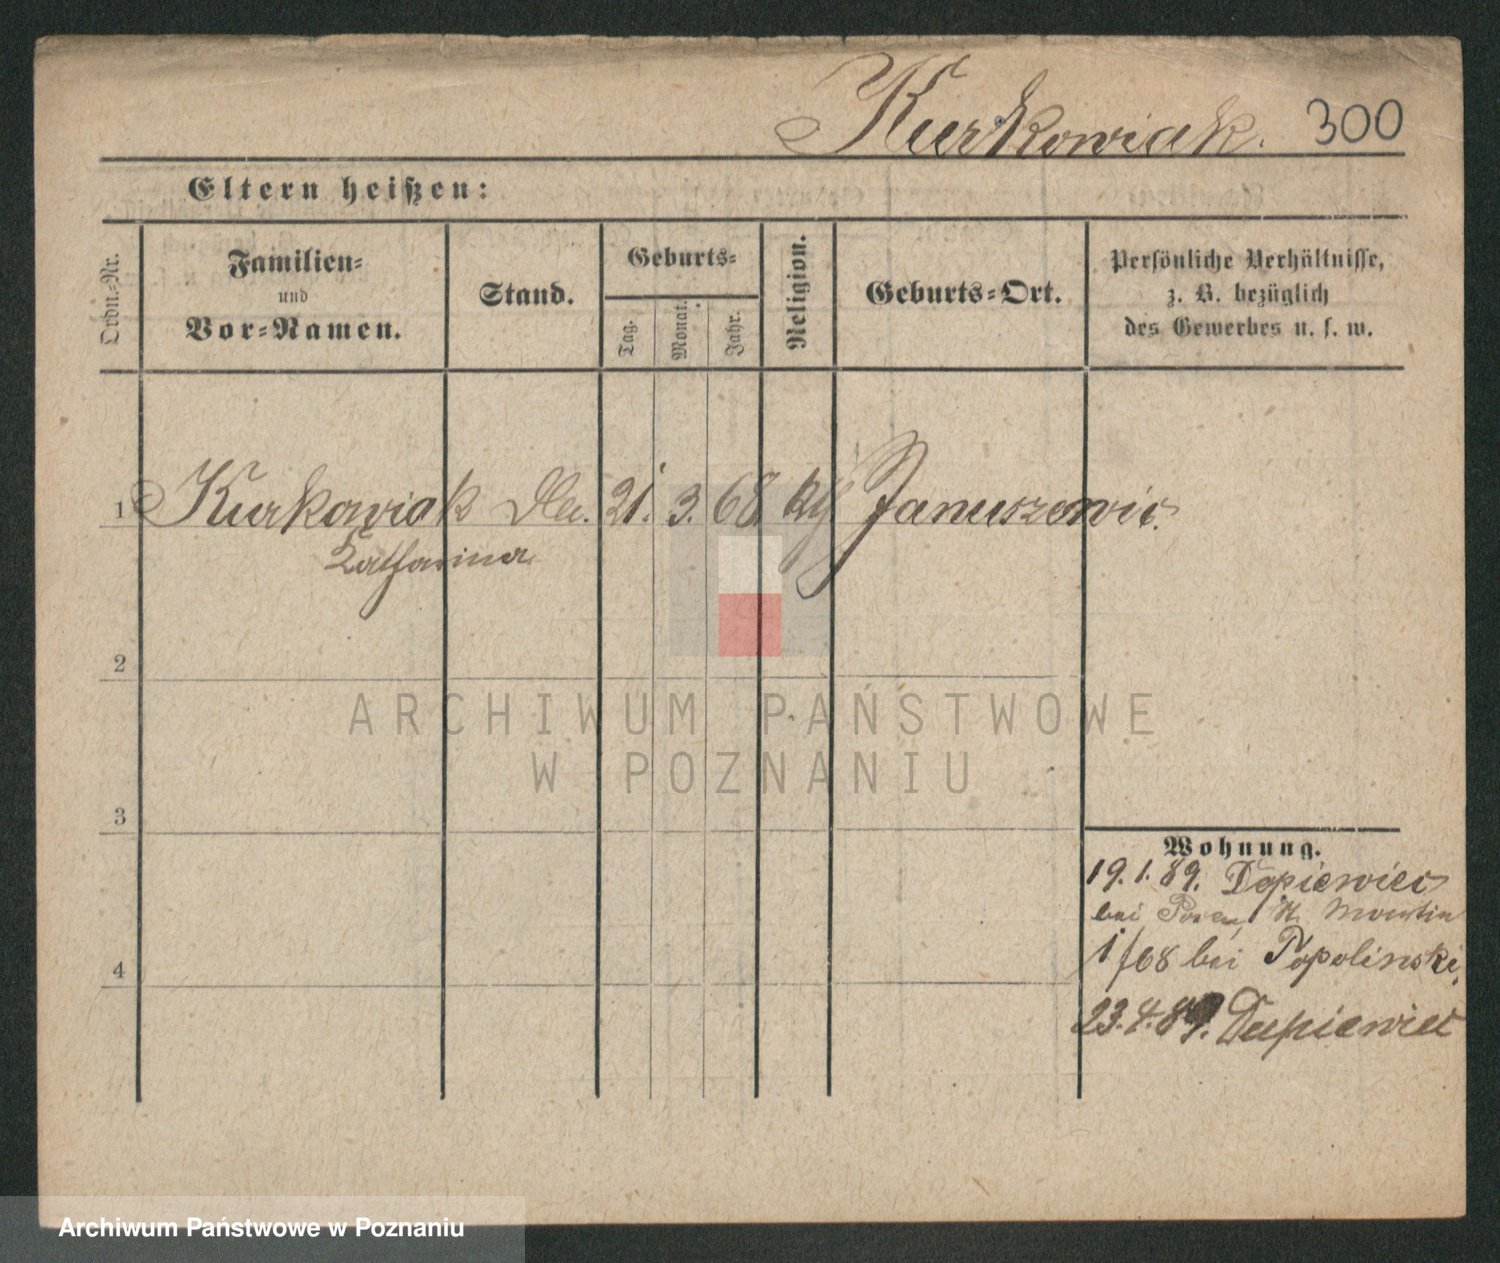 Kurkowiak. 300
Eltern heißen:
Ordn.-Nr.
Familien-
und
Vor-Namen.
Stand.
Geburts-
Tag.
Monat.
Jahr.
Religion.
Geburts-Ort.
Persönliche Verhältnisse,
z. B. bezüglich
des Gewerbes u. s. w.
1 Kurkowiak 21. 3. 68 Januszewic.
Katharina
2
3
4
Wohnung.
19. 1. 89. Dopiewiec
bei Posen, St. Martin
1/68 bei Popolinski,
23. 4. 89. Dupiewiec
ARCHIWUM PAŃSTWOWE
W POZNANIU
Archiwum Państwowe w Poznaniu